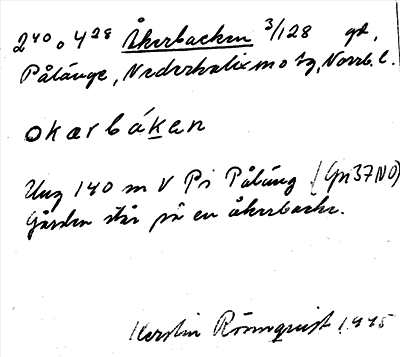 2⁴⁰ o 4²⁸ Åkerbacken ³/128 gd,
Pålänge, Nederkalix sn o tg, Norrb. l.
okarbákan
Ung 140 m V Pi Påläng (Gn37NO)
Gården står på en åkerbacke.
Kerstin Rönnquist 1945